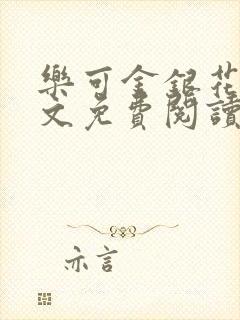 樂可金銀花
文免費閱讀
亦言